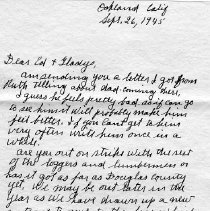 Oakland Calif
Sept. 26, 1945
Dear Ed & Gladys,
am sending you a letter I got from
Ruth telling about dad coming here.
I guess he feels pretty bad, so if can go
to see him it will probably make him
feel better. If you can't get to being
very often write him once in a
while.
are you out on strike with the rest
of the loggers and lumbermen or
has it got as far as Douglas County
yet, We may be out later in the
year as we have drawn up a new